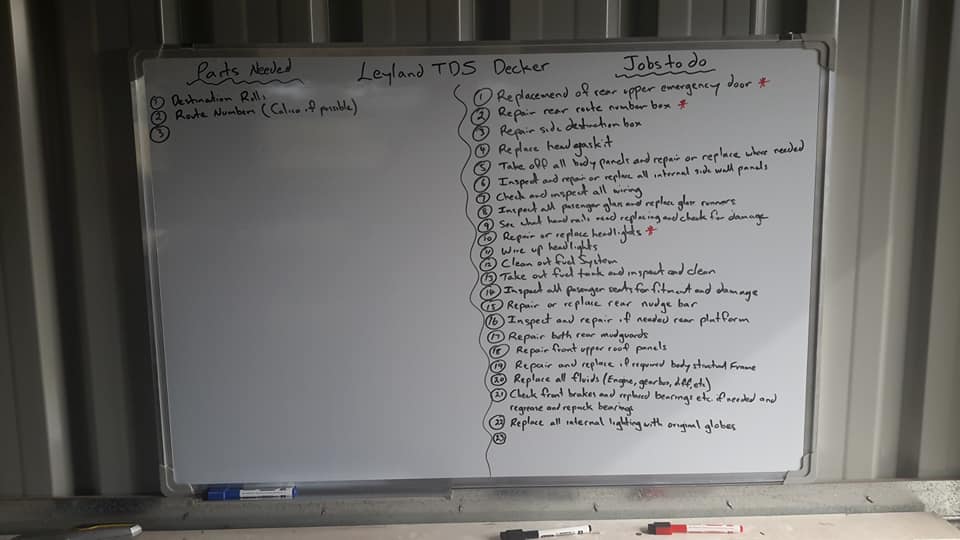 Parts Needed
Leyland TDS Decker
Jobs to do
① Destination Rolls
② Route Numbers (Calico if possible)
③
① Replacemend of rear upper emergency door *
② Repair rear route number box *
③ Repair side destination box
④ Replace head gaskit
⑤ Take off all body panels and repair or replace where needed
⑥ Inspect and repair or replace all internal side wall panels
⑦ Check and inspect all wiring
⑧ Inspect all pasenger glass and replace glass runners
⑨ See what hand rails need replacing and check for damage
⑩ Repair or replace headlights *
⑪ Wire up headlights
⑫ Clean out fuel System
⑬ Take out fuel tank and inspect and clean
⑭ Inspect all pasenger seats for fitment and damage
⑮ Repair or replace rear nudge bar
⑯ Inspect and repair if needed rear platform
⑰ Repair both rear mudguards
⑱ Repair front upper roof panels
⑲ Repair and replace if required body structual Frame
⑳ Replace all fluids (Engine, gearbox, diff, etc)
㉑ Check front brakes and replaced bearings etc if needed and
regrease and repack bearings
㉒ Replace all internal lighting with original globes
㉓